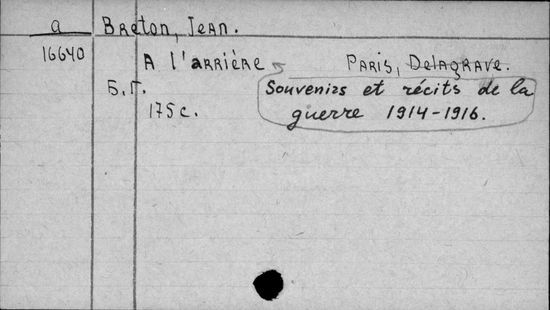 a Breton, Jean.
16640 A l'arrière Paris, Delagrave.
Souvenirs et récits de la
Б.Г. guerre 1914-1916.
175 с.